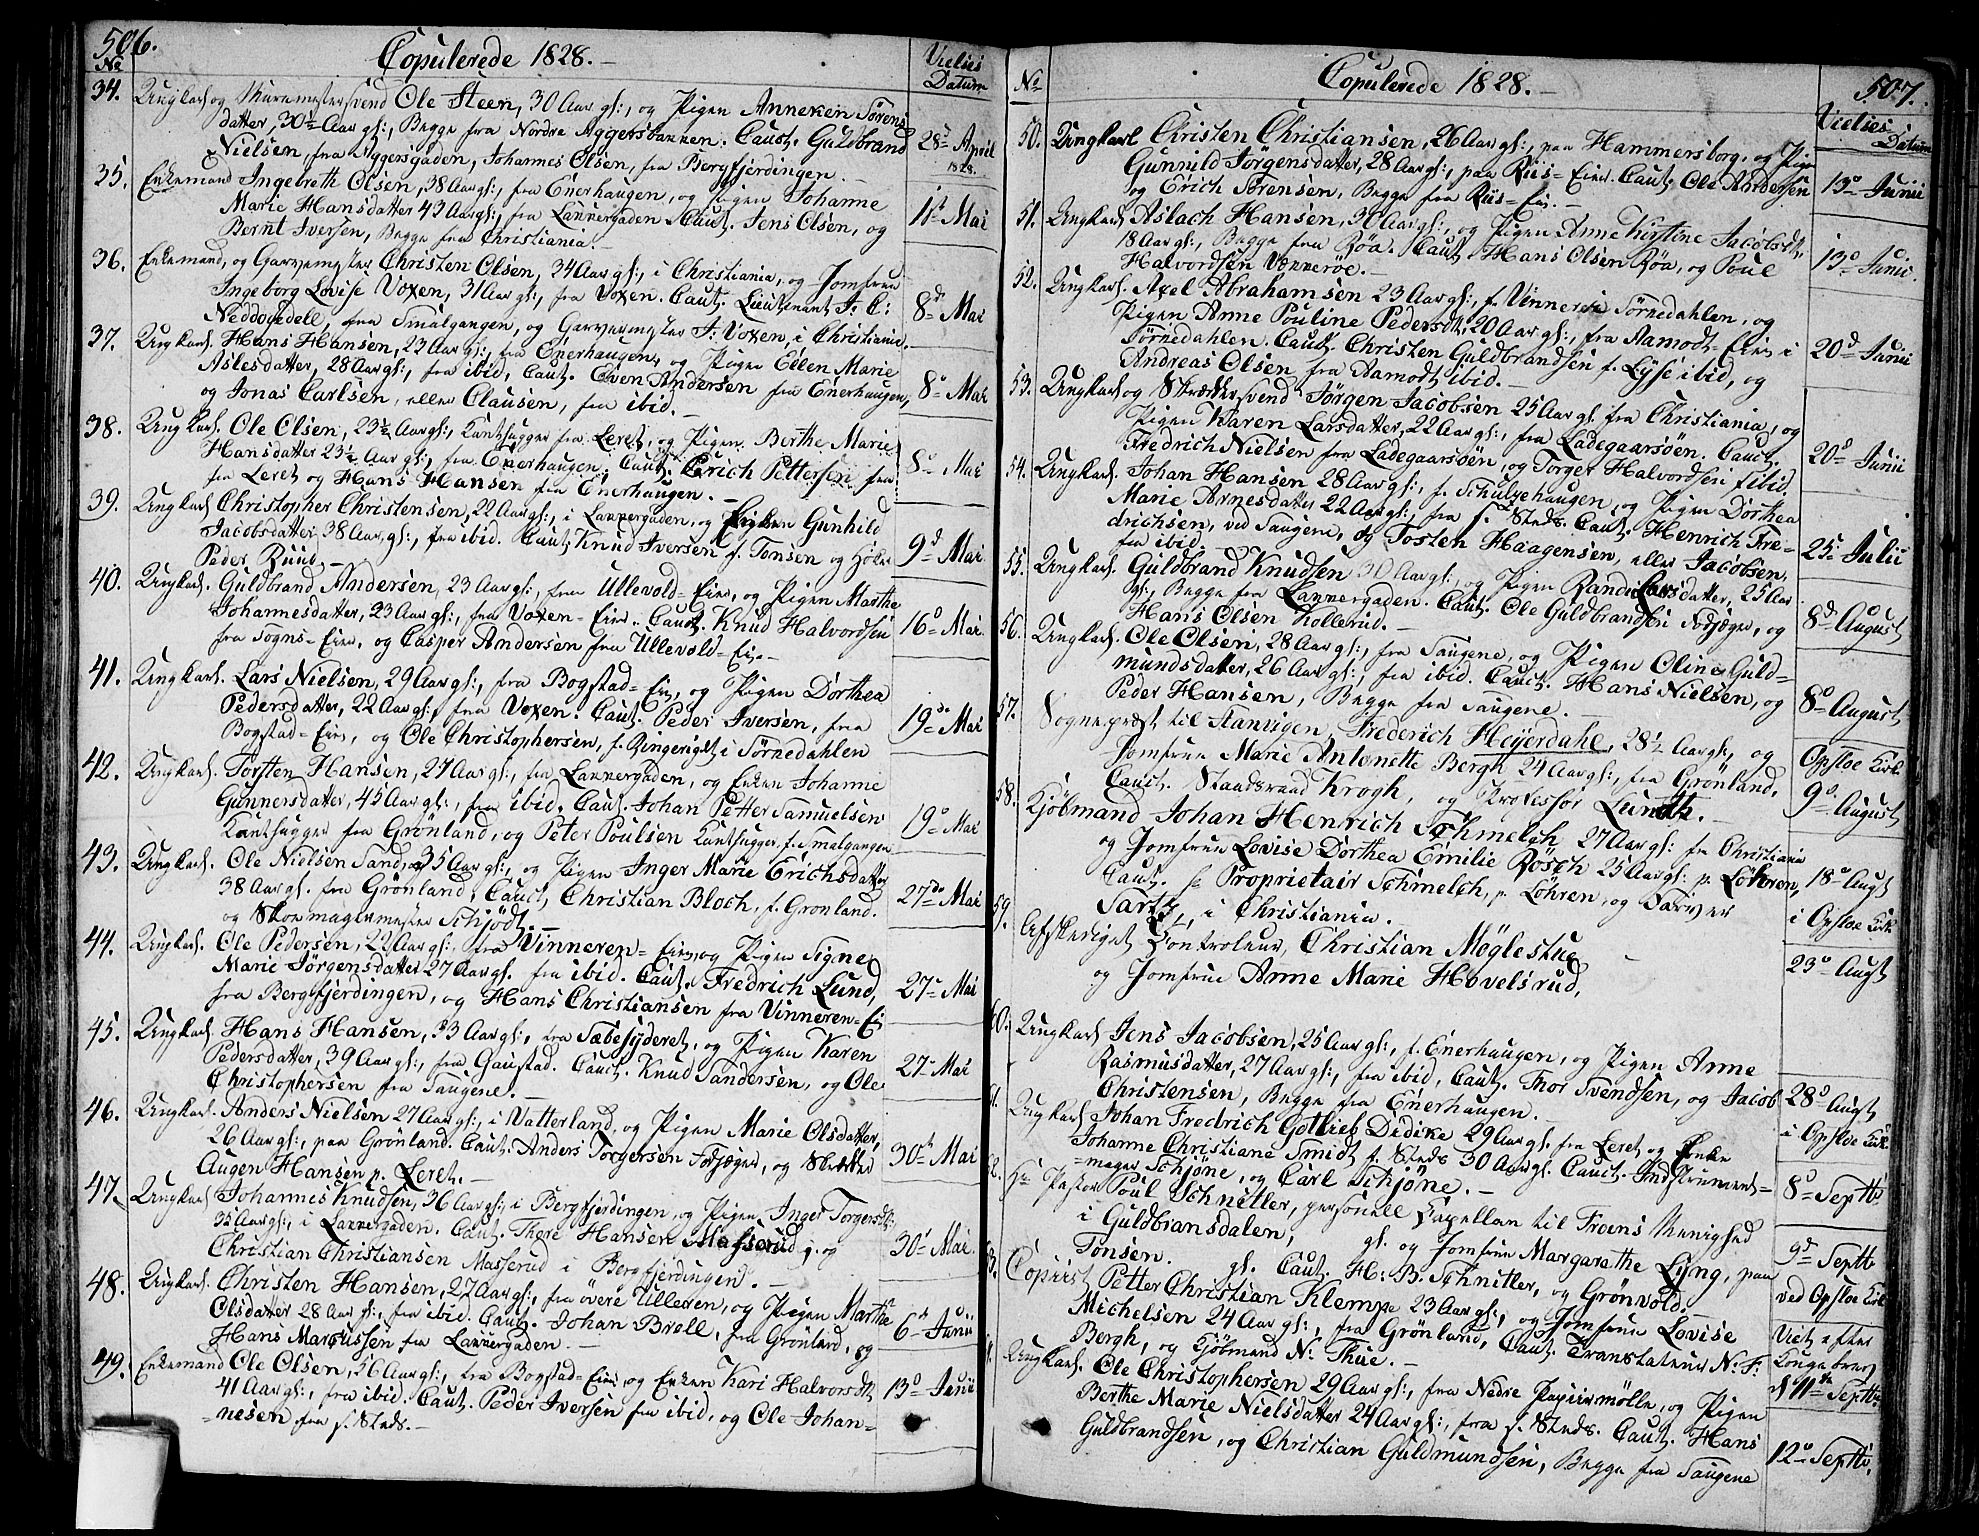 506.
Copulerede 1828.
No
Vielses Datum
34. Ungkarl og Muurmestersvend Ole Steen, 30 Aar gl:, og Pigen Anneken Sørens
datter, 30½ Aar gl:, Begge fra Nordre Aggersbakken. Caut. Guldbrand
Nielsen, fra Aggersgaden, Johannes Olsen, fra Bergfjerdingen.
28de April 1828.
35. Enkemand Ingebreth Olsen, 38 Aar gl:, fra Enerhaugen, og Pigen Johanne
Marie Hansdatter 43 Aar gl:, fra Lakkergaden. Caut. Jens Olsen, og
Bernt Iversen, Begge fra Christiania.
1ste Mai
36. Enkemand, og Garvermester Christen Olsen, 34 Aar gl:, i Christiania, og Jomfrue
Ingeborg Lovise Voxen, 31 Aar gl:, fra Voxen. Caut. Lieutenant F. C:
Neddovedell, fra Smalgangen, og Garvermester J. Voxen, i Christiania.
8de Mai
37. Ungkarl. Hans Hansen, 23 Aar gl:, fra Enerhaugen, og Pigen Ellen Marie
Aslesdatter, 28 Aar gl:, fra ibid, Caut. Even Andersen fra Enerhaugen,
og Jonas Carlsen, eller Clausen, fra ibid.
8de Mai
38. Ungkarl. Ole Olsen, 23½ Aar gl:, Kanthugger fra Leret, og Pigen Berthe Marie
Hansdatter 23½ Aar gl:, fra Enerhaugen. Caut. Erich Pettersen fra
fra Leret og Hans Hansen fra Enerhaugen.
8de Mai
39. Ungkarl Christopher Christensen, 22 Aar gl:, i Lakkergaden, og Pigen Gunhild
Jacobsdatter, 38 Aar gl:, fra ibid. Caut. Knud Iversen f. Tonsen og Høker
Peder Ruud.
9de Mai
40. Ungkarl. Guldbrand Andersen, 23 Aar gl:, fra Ullevold-Eier, og Pigen Marthe
Johannesdatter, 23 Aar gl:, fra Voxen-Eier. Caut. Knud Halvordsen
fra Sogns-Eier, og Casper Andersen fra Ullevold-Ei.
16de Mai.
41. Ungkarl. Lars Nielsen, 29 Aar gl:, fra Bogstad-Eier, og Pigen Dorthea
Pedersdatter, 22 Aar gl:, fra Voxen. Caut. Peder Iversen, fra
Bogstad-Eier, og Ole Christophersen, f. Ringeriget i Sørnedahlen
19de Mai
42. Ungkarl. Torsten Hansen, 27 Aar gl:, fra Lakkergaden, og Enken Johanne
Gunnersdatter, 45 Aar gl:, fra ibid. Caut. Johan Petter Samuelsen
Kanthugger fra Grønland, og Peter Poulsen Kanthugger fra Smalgangen
19de Mai
43. Ungkarl. Ole Nielsen Sand, 35 Aar gl:, og Pigen Inger Marie Erichsdatter
38 Aar gl. fra Grønland, Caut. Christian Bloch, f. Grønland.
og Skomagermester Schjødt.
27de Mai
44. Ungkarl. Ole Pedersen, 22 Aar gl:, fra Vinneren-Eier, og Pigen Signe
Marie Jörgensdatter 27 Aar gl. fra ibid. Caut. Fredrich Lund,
fra Bergfjerdingen, og Hans Christiansen fra Vinneren-Ei
27de Mai
45. Ungkarl Hans Hansen, 33 Aar gl:, fra Sæbesyderet, og Pigen Karen
Pedersdatter, 39 Aar gl:, fra Gaustad. Caut. Knud Sandersen, og Ole
Christophersen fra Saugene.
27de Mai
46. Ungkarl. Anders Nielsen 27 Aar gl:, i Vatterland, og Pigen Marie Olsdatter,
26 Aar gl:, paa Grønland. Caut. Anders Torgersen Fodjæger, og Skrædder
Augen Hansen p. Leret.
30te Mai
47. Ungkarl Johannes Knudsen, 36 Aar gl: i Bergfjerdingen, og Pigen Inger Torgersdtr,
35 Aar gl:, i Lakkergaden. Caut. Thore Hansen Masserud, og
Christian Christiansen Masserud i Bergfjerdingen.
30te Mai.
48. Ungkarl. Christen Hansen, 27 Aar gl:, fra övere Ulleren, og Pigen Marthe
Olsdatter 28 Aar gl:, fra ibid. Caut. Johan Brell, fra Grønland, og
Hans Marcussen fra Lakkergaden.
6te Junii
49. Enkemand Ole Olsen, 56 Aar gl:, fra Bogstad-Eier, og Enken Kari Halvorsdtr,
41 Aar gl:, fra ibid. Caut. Peder Iversen fra ibid, og Ole Johan=
=nesen fra s. Steds.
13de Junii
No
Copulerede 1828.
507.
Vielses Datum
50. Ungkarl Christen Christiansen, 26 Aar gl:, paa Hammersborg, og Pigen
Gunnild Jörgensdatter, 28 Aar gl:, paa Riis-Eier. Caut. Ole Andersen
og Erich Sørensen, Begge fra Riis-Ei.
13de Junii
51. Ungkarl Aslach Hansen, 30 Aar gl:, og Pigen Anne Kistine Jacobsdtr,
18 Aar gl:, Begge fra Røa. Caut. Hans Olsen Røa, og Poul
Halvordsen Vækkerøe.
13de Junii
52. Ungkarl. Axel Abrahamsen 23 Aar gl:, f. Vinneren Sørnedahlen, og
Pigen Anne Pouline Pedersdt, 20 Aar gl:, fra Aamodt-Eier i
Sørnedahlen. Caut. Christen Guldbrandsen f. Lysse ibid, og
Andreas Olsen fra Aamodt ibid.
20de Junii
53. Ungkarl og Skræddersvend Jørgen Jacobsen 25 Aar gl. fra Christiania, og
Pigen Karen Larsdatter, 22 Aar gl:, fra Ladegaarsøen. Caut.
Fredrich Nielsen fra Ladegaarsøen, og Torger Halvordsen f. ibid.
20de Junii
54. Ungkarl. Johan Hansen 28 Aar gl:, f. Schultzehaugen, og Pigen Dorthea
Marie Arnesdatter 22 Aar gl:, fra s. Steds. Caut. Henrich Fre=
drichsen, ved Saugene, og Tosten Haagensen, eller Jacobsen,
fra ibid.
25de Julii
55. Ungkarl. Guldbrand Knudsen 30 Aar gl:, og Pigen Randi Larsdatter, 25 Aar
gl:, Begge fra Lakkergaden. Caut. Ole Guldbrandsen Fodjæger, og
Hans Olsen Kollerud.
8de August
56. Ungkarl. Ole Olsen, 28 Aar gl:, fra Saugene, og Pigen Oline Guld=
mundsdatter, 26 Aar gl:, fra ibid. Caut. Hans Nielsen, og
Peder Hansen, Begge fra Saugene.
8de August
57. Sognepræst til Stavigen, Frederich Heyerdahl, 28½ Aar gl:, og
Jomfrue Marie Antonette Bergh 24 Aar gl:, fra Grønland,
Caut. Stadsraad Krogh, og Professor Lundh.
Opsloe Kirk.
9de August
58. Kjöbmand Johan Henrich Schmelch, 27 Aar gl: fra Christiania
og Jomfrue Lovise Dorthea Emilie Rösch 25 Aar gl: p. Löhren,
Caut. Proprietair Schmelch, p. Löhren, og Farver
Sartz, i Christiania.
18de Augt
i Opsloe Kirk
59. Afskediget Controleur, Christian Møglestue
og Jomfrue Anne Marie Hovelsrud,
23de Augt
60. Ungkarl Jens Jacobsen, 25 Aar gl:, f. Enerhaugen, og Pigen Anne
Rasmusdatter, 27 Aar gl:, fra ibid, Caut. Thor Svendsen, og Jacob
Christensen, Begge fra Enerhaugen.
28de Augt
i Opsloe Kirk
61. Ungkarl Johan Fredrich Gottlieb Didike 29 Aar gl. fra Leret og Enke
Johanne Christiane Smidt f. Steds 30 Aar gl. Caut. Instrument=
=mager Schjöne, og Carl Schjöne.
8de Septbr
62. Hr Pastor Poul Schnitler, personell Capellan til Froens Menighed
i Guldbransdalen, gl. og Jomfrue Margarethe Lyng, paa
Tonsen. gl. Caut. H: B. Schnitler, og Grønvold.
9de Septb
ved Opsloe Kirk
63. Copiist Petter Christian Klempe 23 Aar gl:, og Jomfrue Lovise
Michelsen 24 Aar gl:, fra Grønland, Caut. Translateur N: F:
Bergh, og Kjöbmand N: Thue.
Viet efter
Kongebrev
d 11te Septbr
Ungkarl. Ole Christophersen 29 Aar gl:, fra Nedre Papiirmølle, og Pigen
Berthe Marie Nielsdatter 24 Aar gl:, fra s. Steds. Caut. Hans
Guldbrandsen, og Christian Guldmundsen, Begge fra Saugene
12de Septbr,